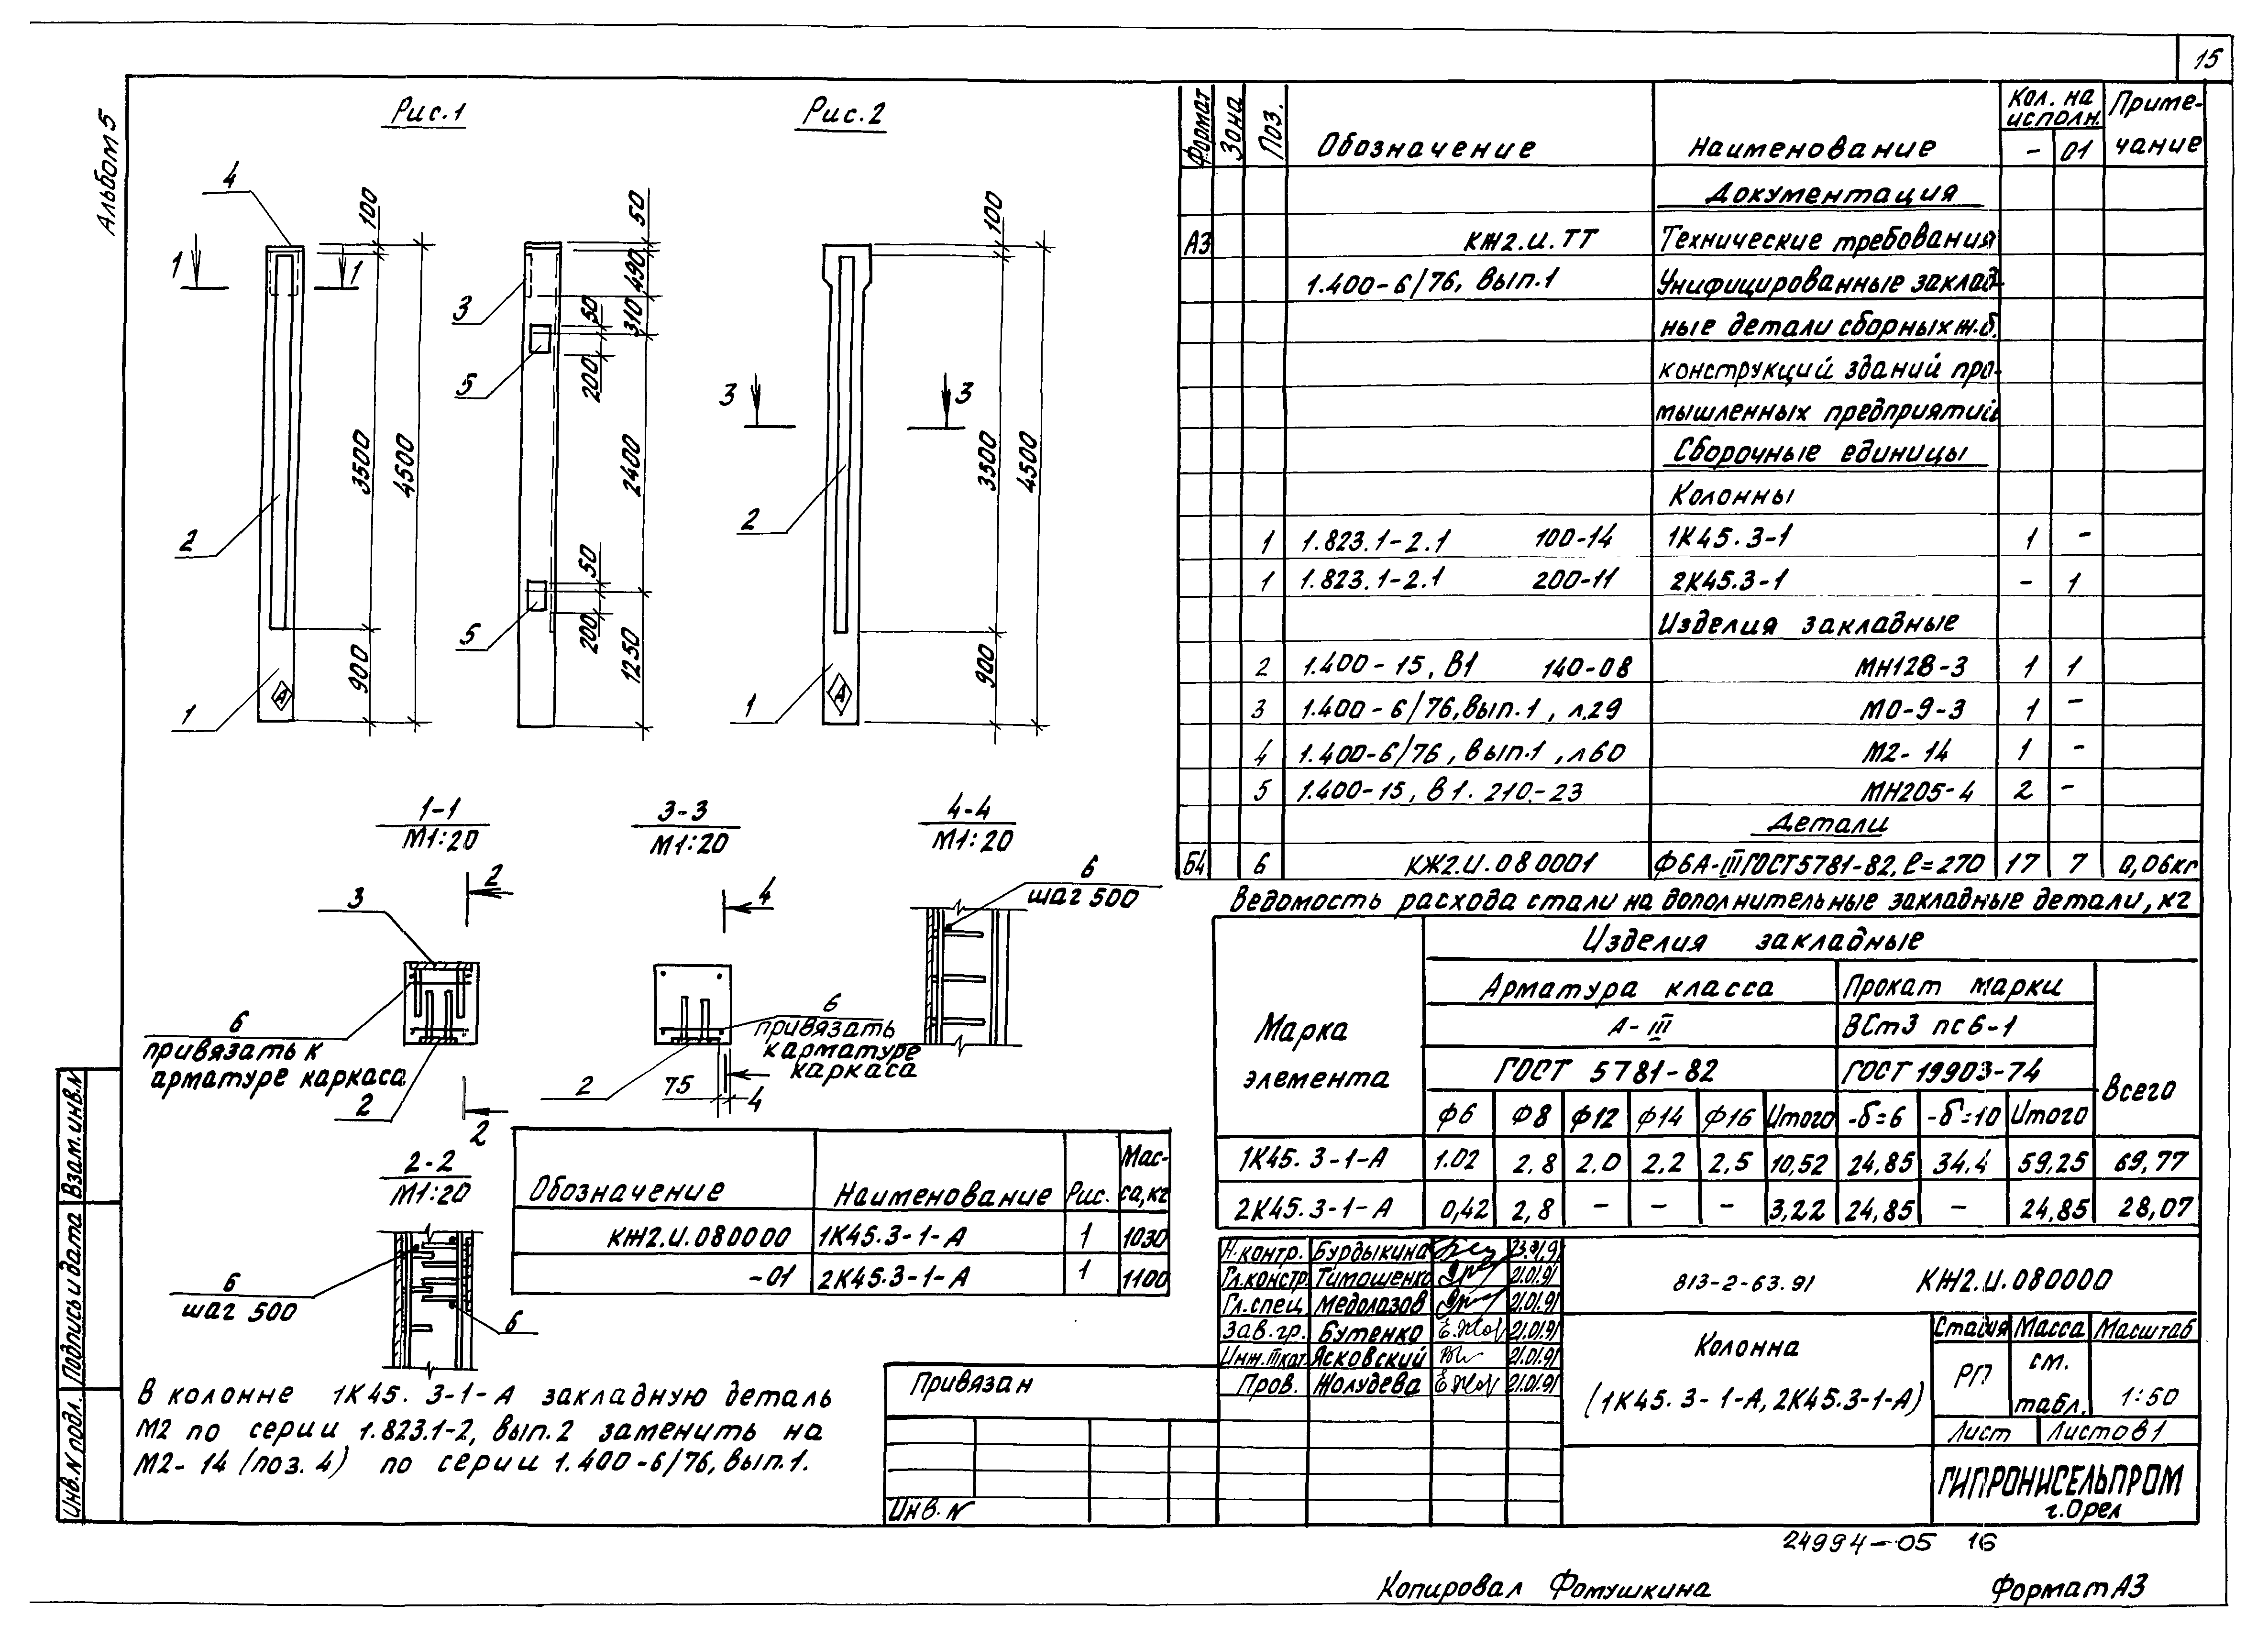 15
Альбом 5
Рис.1
Рис.2
4
100
4500
3500
900
1
1
2
1
А
50
490
310
50
200
2400
50
200
1250
3
5
5
100
3500
4500
900
3
3
2
1
А
1-1
М1:20
3-3
М1:20
4-4
М1:20
2
3
6
привязать к
арматуре каркаса
2
2
4
6
привязать
к арматуре
каркаса
2
75
4
6
шаг 500
2-2
М1:20
6
шаг 500
6
Формат
Зона
Поз.
Обозначение
Наименование
Кол. на исполн.
- 01
Приме-
чание
Документация
А3 КЖ2.И.ТТ Технические требования
1.400-6/76, вып.1 Унифицированные заклад-
ные детали сборных ж.б.
конструкций зданий про-
мышленных предприятий
Сборочные единицы
Колонны
1 1.823.1-2.1 100-14 1К45.3-1 1 -
1 1.823.1-2.1 200-11 2К45.3-1 - 1
Изделия закладные
2 1.400-15, В1 140-08 МН128-3 1 1
3 1.400-6/76, вып.1, л.29 МО-9-3 1 -
4 1.400-6/76, вып.1, л60 М2-14 1 -
5 1.400-15, в1. 210-23 МН205-4 2 -
Детали
Б4 6 КЖ2.И.080001 Ф6А-III ГОСТ5781-82, ℓ=270 17 7 0,06кг
Ведомость расхода стали на дополнительные закладные детали, кг
Марка
элемента
Изделия закладные
Арматура класса Прокат марки
А-III ВСт3 пс6-1
ГОСТ 5781-82 ГОСТ 19903-74
Всего
Ф6 Ф8 Ф12 Ф14 Ф16 Итого -δ=6 -δ=10 Итого
1К45.3-1-А 1.02 2,8 2,0 2,2 2,5 10,52 24,85 34,4 59,25 69,77
2К45.3-1-А 0,42 2,8 - - - 3,22 24,85 - 24,85 28,07
Обозначение Наименование Рис. Мас-
са,кг
КЖ2.И.080000 1К45.3-1-А 1 1030
-01 2К45.3-1-А 1 1100
В колонне 1К45. 3-1-А закладную деталь
М2 по серии 1.823.1-2, вып.2 заменить на
М2-14 (поз. 4) по серии 1.400-6/76, вып.1.
Привязан
Инв. N
Н.контр. Бурдыкина
Гл.констр. Тимошенко 21.01.91
Гл.спец. Медолазов 21.01.91
Зав.гр. Бутенко 21.01.91
Инж.III кат. Ясковский 21.01.91
Пров. Жолудева 21.01.91
813-2-63.91 КЖ2.И.080000
Колонна
(1К45.3-1-А, 2К45.3-1-А)
Стадия Масса Масштаб
РП см.
табл. 1:50
Лист Листов 1
ГИПРОНИСЕЛЬПРОМ
г.Орел
Взам.инв.N
Подпись и дата
Инв.N подл.
24994-05 16
Копировал Фомушкина
Формат А3